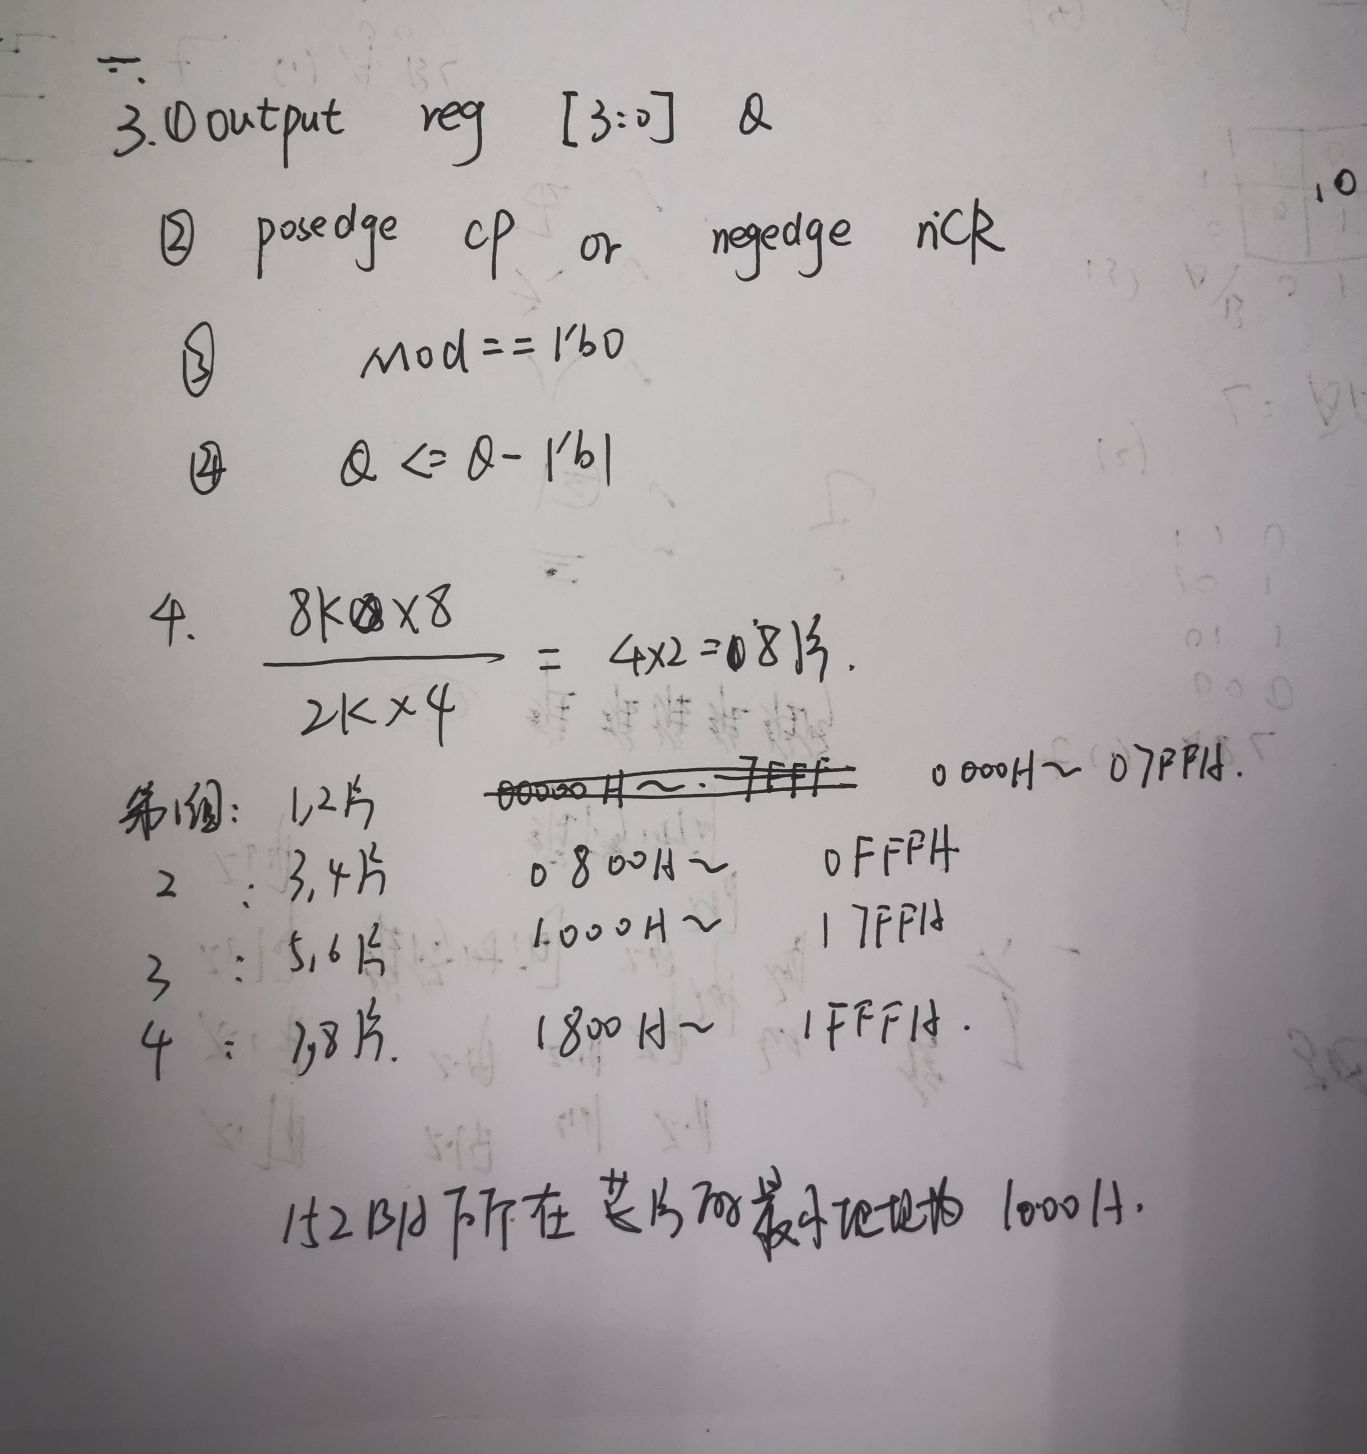 二.
3.① output reg [3:0] Q
② posedge CP or negedge nCR
③ Mod==1'b0
④ Q <= Q-1'b1
4. 8K×8
2K×4
= 4×2=8片.
第1组: 1,2片 0000H~07FFH.
2 : 3,4片 0800H~ 0FFFH
3 : 5,6片 1000H~ 17FFH
4 : 7,8片. 1800H~ 1FFFH.
152BH所在芯片的最小地址为 1000H.